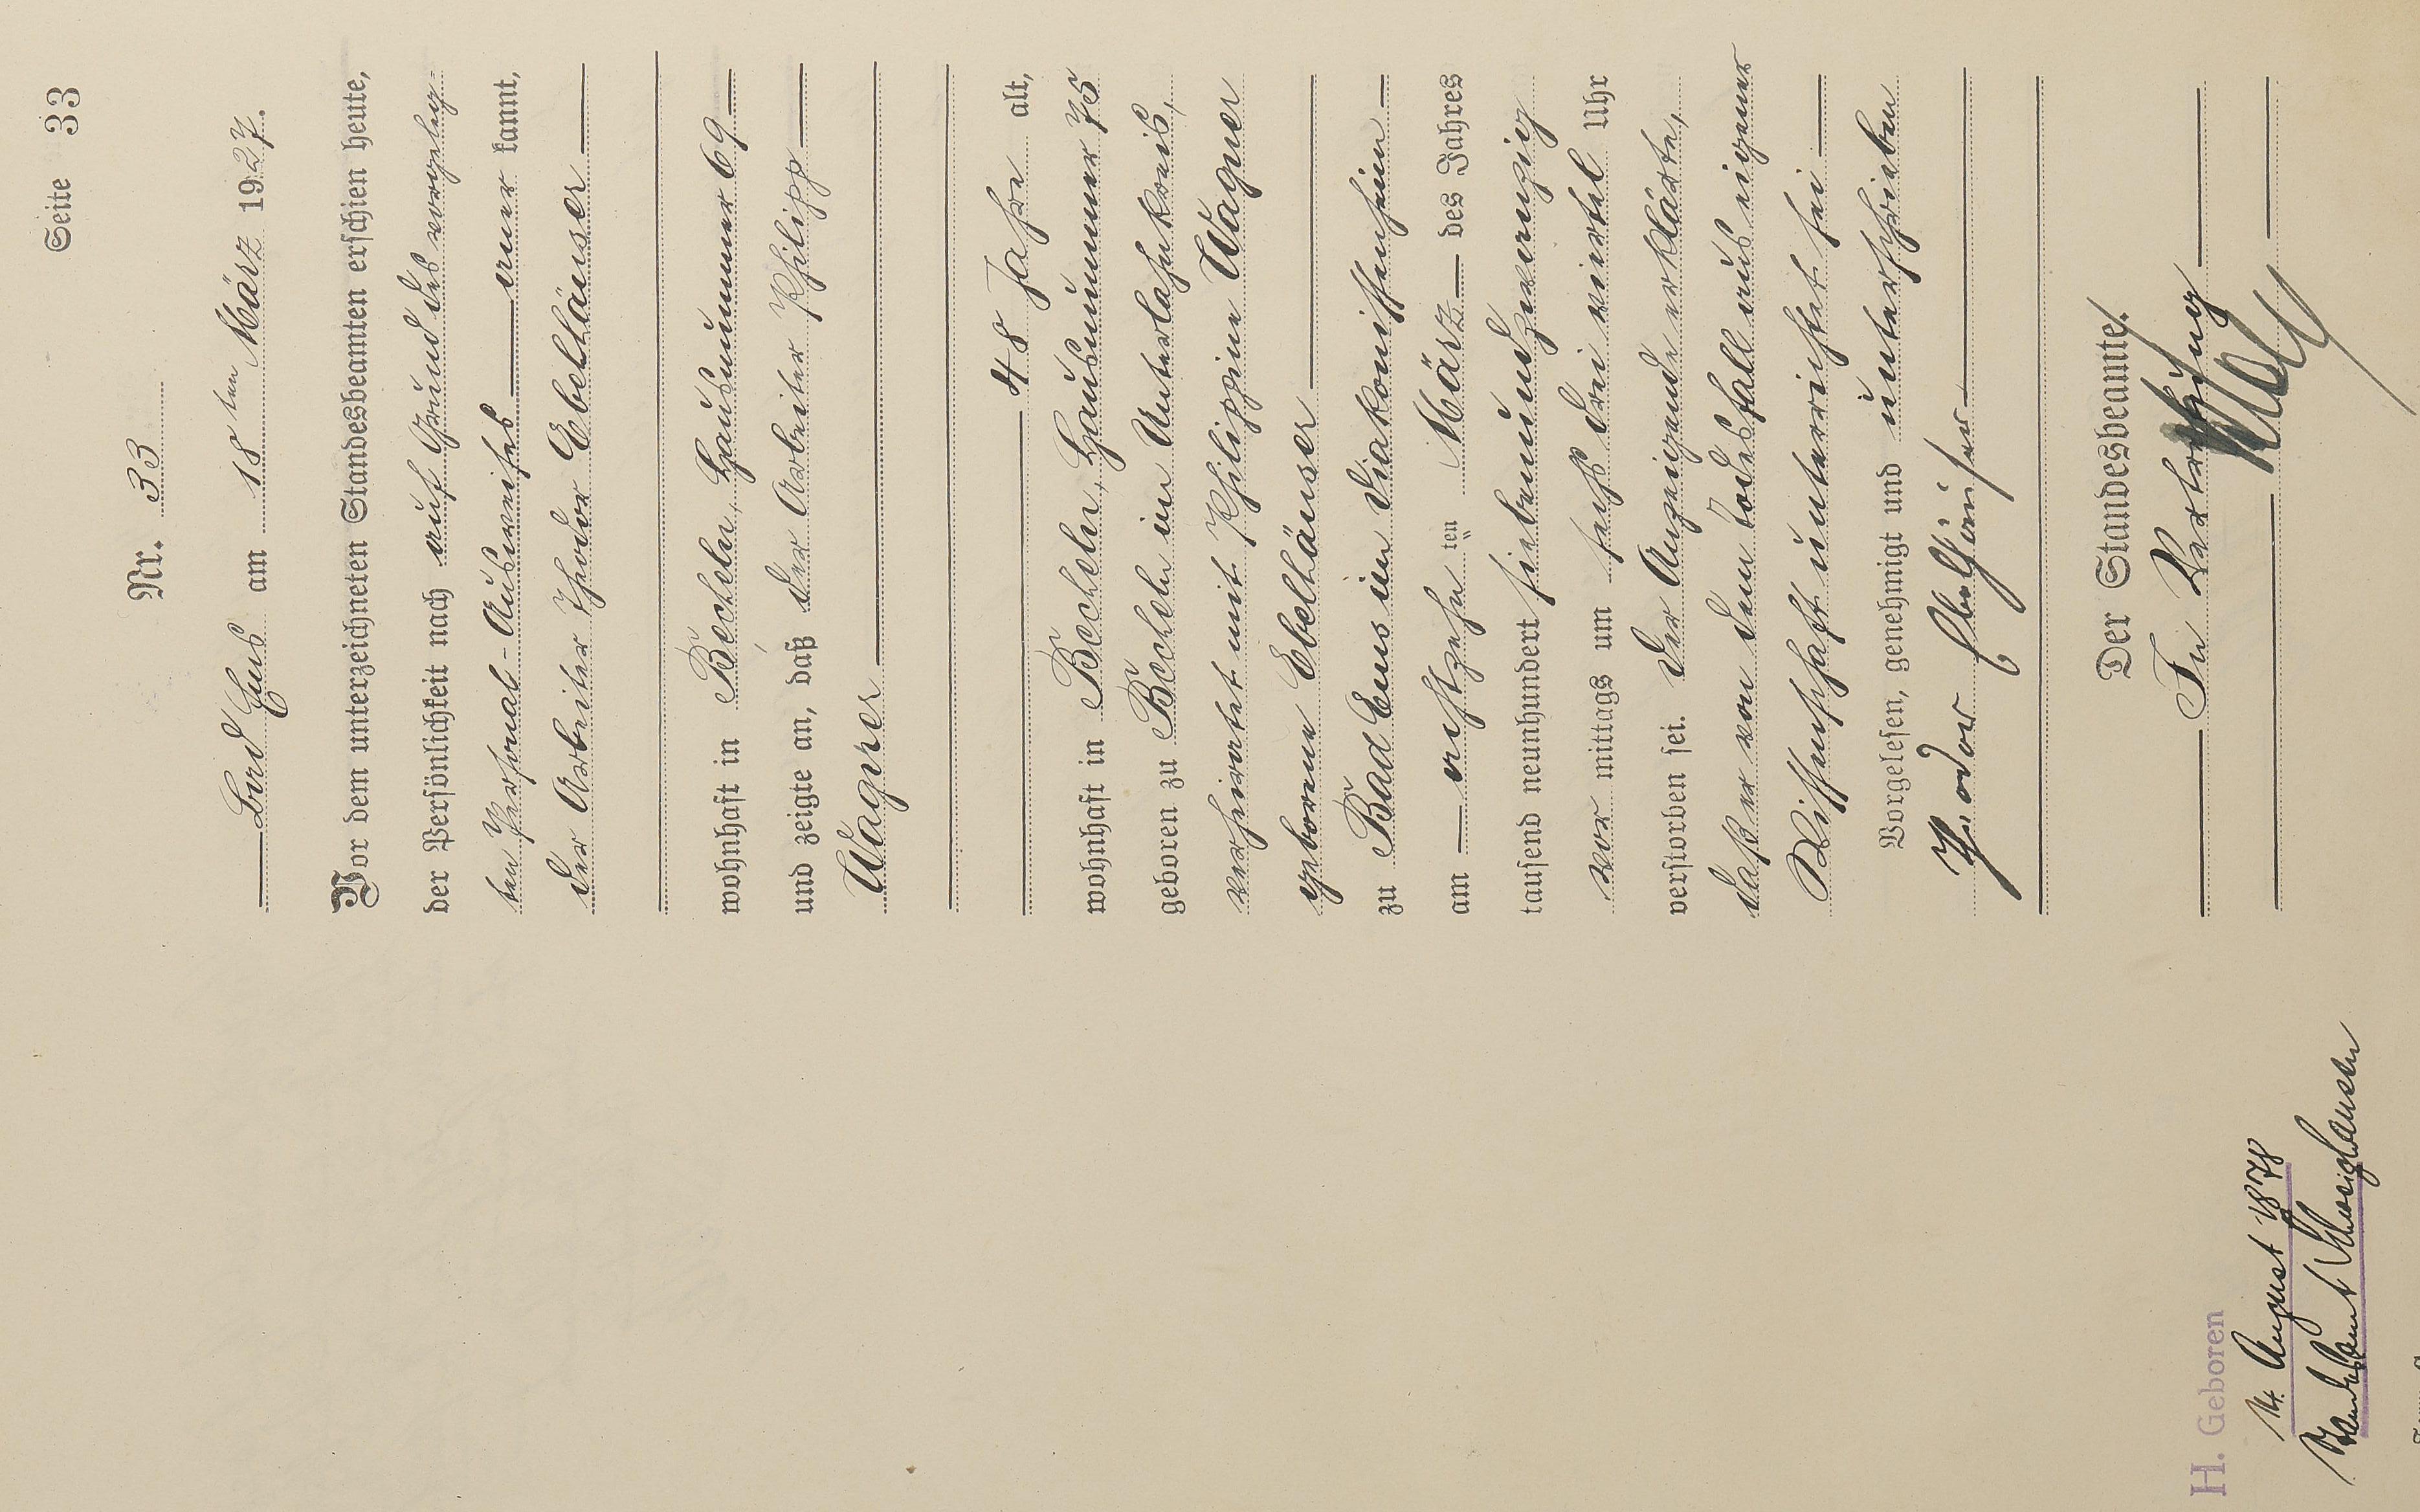 Seite 33
Nr. 33
Bad Ems am 18ten März 1927.
Vor dem unterzeichneten Standesbeamten erschien heute,
der Persönlichkeit nach auf Grund des vorgeleg-
ten Personal-Ausweises aner kannt,
der Arbeiter Theodor Ebelhäuser
wohnhaft in Becheln, Hausnummer 69
und zeigte an, daß der Arbeiter Philipp
Wagner
48 Jahre alt,
wohnhaft in Becheln, Hausnummer 75
geboren zu Becheln im Unterlahnkreis,
verheiratet mit Philippine Wagner
geborene Ebelhäuser
zu Bad Ems im Diakonissenheim
am achtzehn ten März des Jahres
tausend neunhundert siebenundzwanzig
vor mittags um sechs drei viertel Uhr
verstorben sei. Der Anzeigende erklärte,
daß er von dem Todesfall aus eigener
Wissenschaft unterrichtet sei
Vorgelesen, genehmigt und unterschrieben
Theodor Ebelhäuser
Der Standesbeamte.
In Vertretung
H. Geboren
14. August 1878
Standesamt